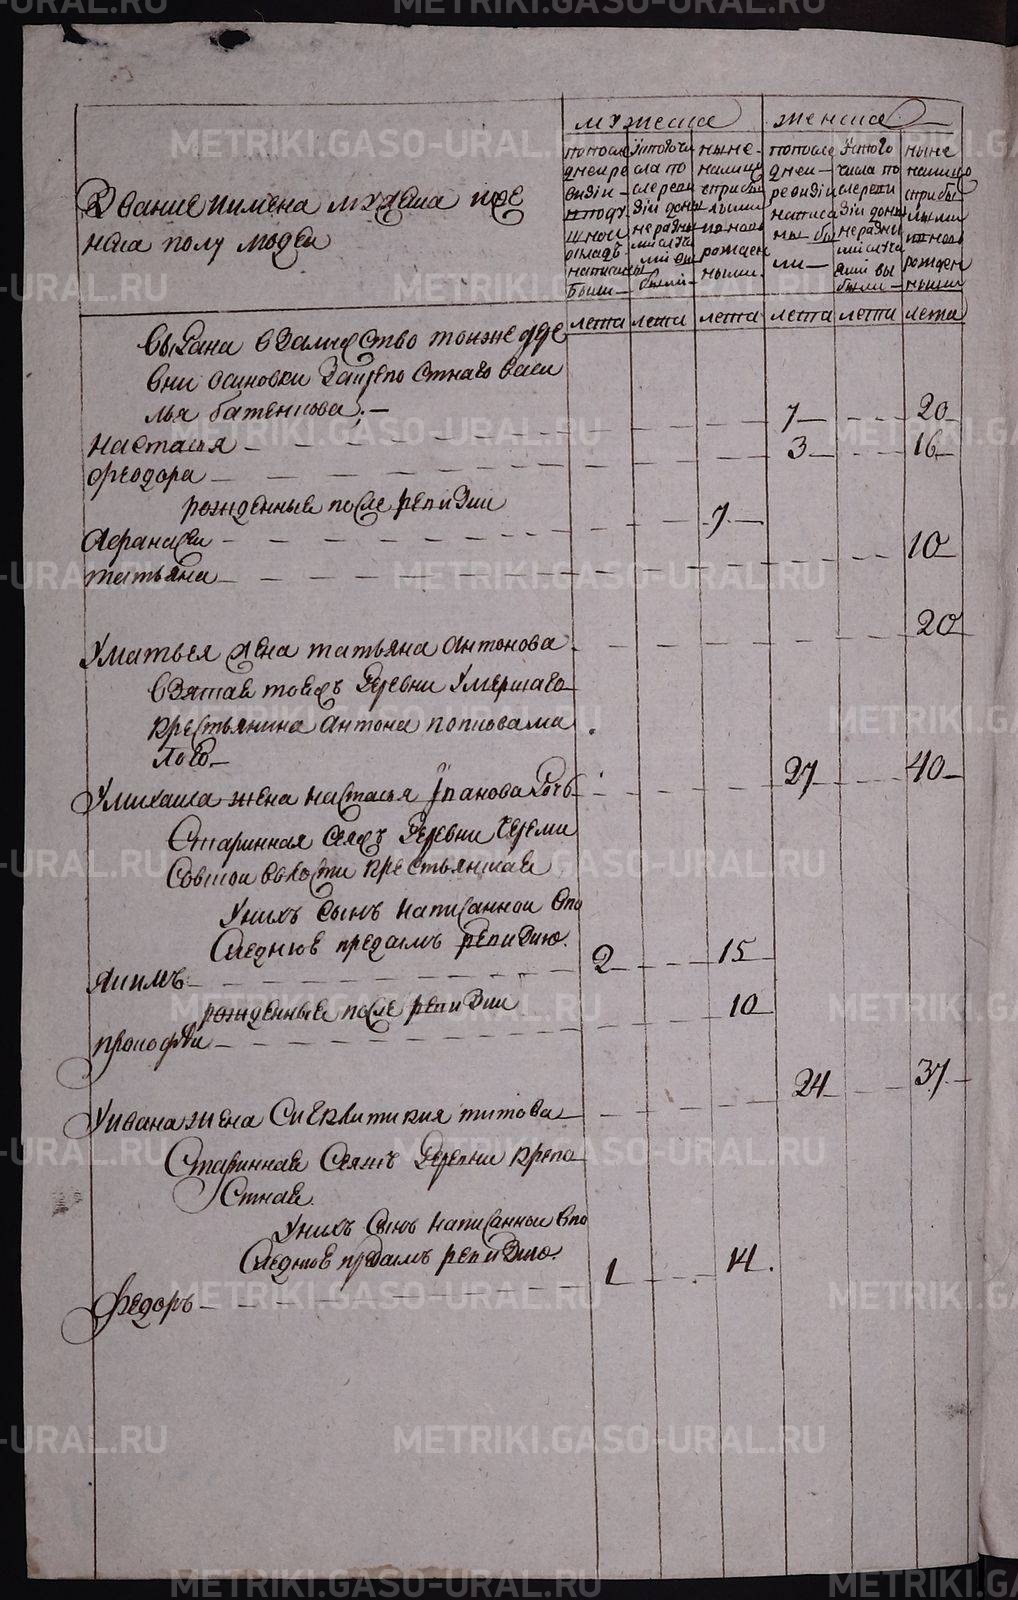 METRIKI.GASO-URAL.RU
мужеска женска
Звание иимена мужеска иже
нска полу людеи
попосле
днеи ре
визіи
вподу
шнои
окладъ
написаны
были
истого чи
сла по
слереви
зіи доны
не разны
ми случа
ми вы
были
ныне
налицо
сприбы
лыми
ипоново
рожден
ными
попосле
днеи
ревизіи
написа
ны бы
ли
Изтого
числа по
слереви
зіи доны
неразны
ми случа
ями вы
были
ныне
налицо
сприбы
лыми
ипоново
рожден
ными
лета лета лета лета лета лета
выдана взамужство тоиже дере
вни осиновки зануепостнаго васи
лья батенкова.
настасья 7 20
феодора 3 16
рожденные после ревизии
Афанасеи 7
татьяна 10
Уматвея жена татьяна антонова 20
взятая тоежъ деревни умершаго
крестьянина антона попкова ма
лого
Умихаила жена настасья Упанова дочь 27 40
Старинная сеяжъ деревни череми
совскои волости крестьянская
Унихъ сынъ написаннои впо
следнюе предъимъ ревизию.
якимъ 2 15
рожденные после ревизии
прокофеи 10
Уивана жена Сиеклитикия титова 24 37
Старинная сеяжъ деревни крепо
стная.
Унихъ сынъ написаннои впо
следнюе предъимъ ревизию.
Федоръ 1 14